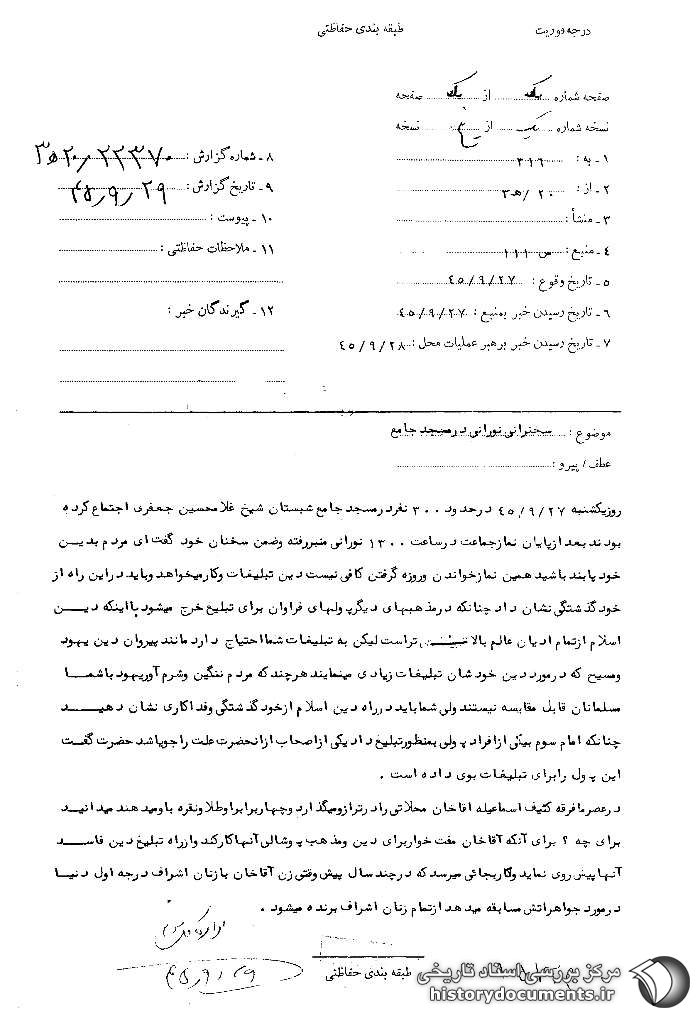 درجه فوریت
طبقه بندی حفاظتی
صفحه شماره یک از یک صفحه
نسخه شماره یک از نسخه
۱ ـ به : ۳۱٦
۲ ـ از : ۲۰ / ه‍ ۳
۳ ـ منشأ :
٤ ـ منبع : س ۱۱۱
٥ ـ تاریخ وقوع : ٤٥/۹/۲۷
٦ ـ تاریخ رسیدن خبر بمنبع : ٤٥/۹/۲۷
۷ ـ تاریخ رسیدن خبر برهبر عملیات محل : ٤٥/۹/۲۸
۸ ـ شماره گزارش :
۹ ـ تاریخ گزارش : ۴۵/۹/۲۹
۱۰ ـ پیوست :
۱۱ ـ ملاحظات حفاظتی :
۱۲ ـ گیرندگان خبر :
موضوع : سخنرانی نورانی در مسجد جامع
عطف / پیرو :
روز یکشنبه ٤٥/۹/۲۷ در حدود ۳۰۰ نفر در مسجد جامع شبستان شیخ غلامحسین جعفری اجتماع کرده
بودند بعد از پایان نماز جماعت در ساعت ۱۳۰۰ نورانی منبر رفته وضمن سخنان خود گفت ای مردم بدین
خود پابند باشید همین نماز خواندن وروزه گرفتن کافی نیست دین تبلیغات وکار میخواهد وباید در این راه از
خود گذشتگی نشان داد چنانکه در مذهبهای دیگر پولهای فراوان برای تبلیغ خرج میشود با اینکه دین
اسلام از تمام ادیان عالم بالا تر است لیکن به تبلیغات شما احتیاج دارد مانند پیروان دین یهود
ومسیح که در مورد دین خودشان تبلیغات زیادی مینمایند هر چند که مردم ننگین وشرم آور یهود با شما
مسلمانان قابل مقایسه نیستند ولی شما باید در راه دین اسلام از خود گذشتگی وفداکاری نشان دهید
چنانکه امام سوم بیکی از افراد پولی بمنظور تبلیغ داد یکی از اصحاب از انحضرت علت را جویا شد حضرت گفت
این پول را برای تبلیغات بوی داده است .
در عصر ما فرقه کثیف اسماعیله اقا خان محلاتی را در ترازو میگذارد وچهار برابر او طلا ونقره با و میدهند میدانید
برای چه ؟ برای آنکه آقا خان مفت خوار برای دین ومذهب پوشالی آنها کار کند واز راه تبلیغ دین فاسد
آنها پیش روی نماید وکار بجائی میرسد که در چند سال پیش وقتی زن آقا خان با زنان اشراف درجه اول دنیا
در مورد جواهراتش مسابقه میدهد از تمام زنان اشراف برنده میشود .
۴۵/۹/۲۹
طبقه بندی حفاظتی
مرکز بررسی اسناد تاریخی
historydocuments.ir